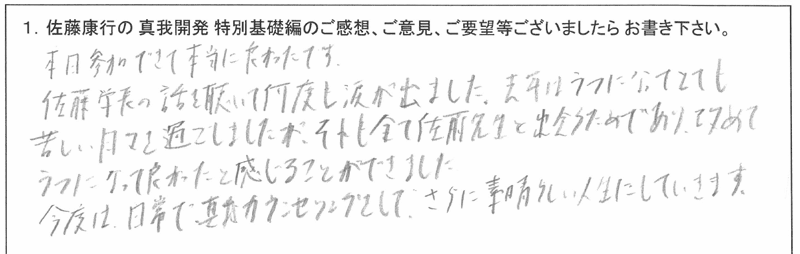 1. 佐藤康行の 真我開発 特別基礎編のご感想、ご意見、ご要望等ございましたら お書き下さい。
本日参加できて本当に良かったです。
佐藤学長の話を聴いて何度も涙が出ました。去年はうつになってとても
苦しい日々を過ごしましたが、それも全て佐藤先生と出会うためであり、改めて
うつになって良かったと感じることができました
今度は、日常で、真我カウンセリングをして、さらに素晴らしい人生にしていきます。